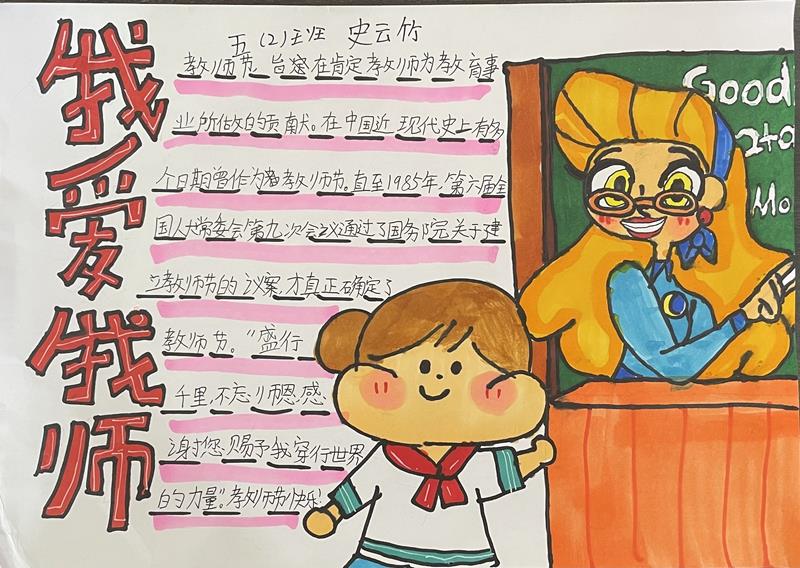 我爱我师
五(2)班 史云竹
教师节，旨在肯定教师为教育事
业所做的贡献。在中国近现代史上有多
个日期曾作为着教师节。直至1985年，第六届全
国人大常委会第九次会议通过了国务院关于建
立教师节的议案，才真正确定了
教师节。“盛行
千里，不忘师恩，感
谢您，赐予我穿行世界
的力量”。教师节快乐！
Good
2+a
Mo